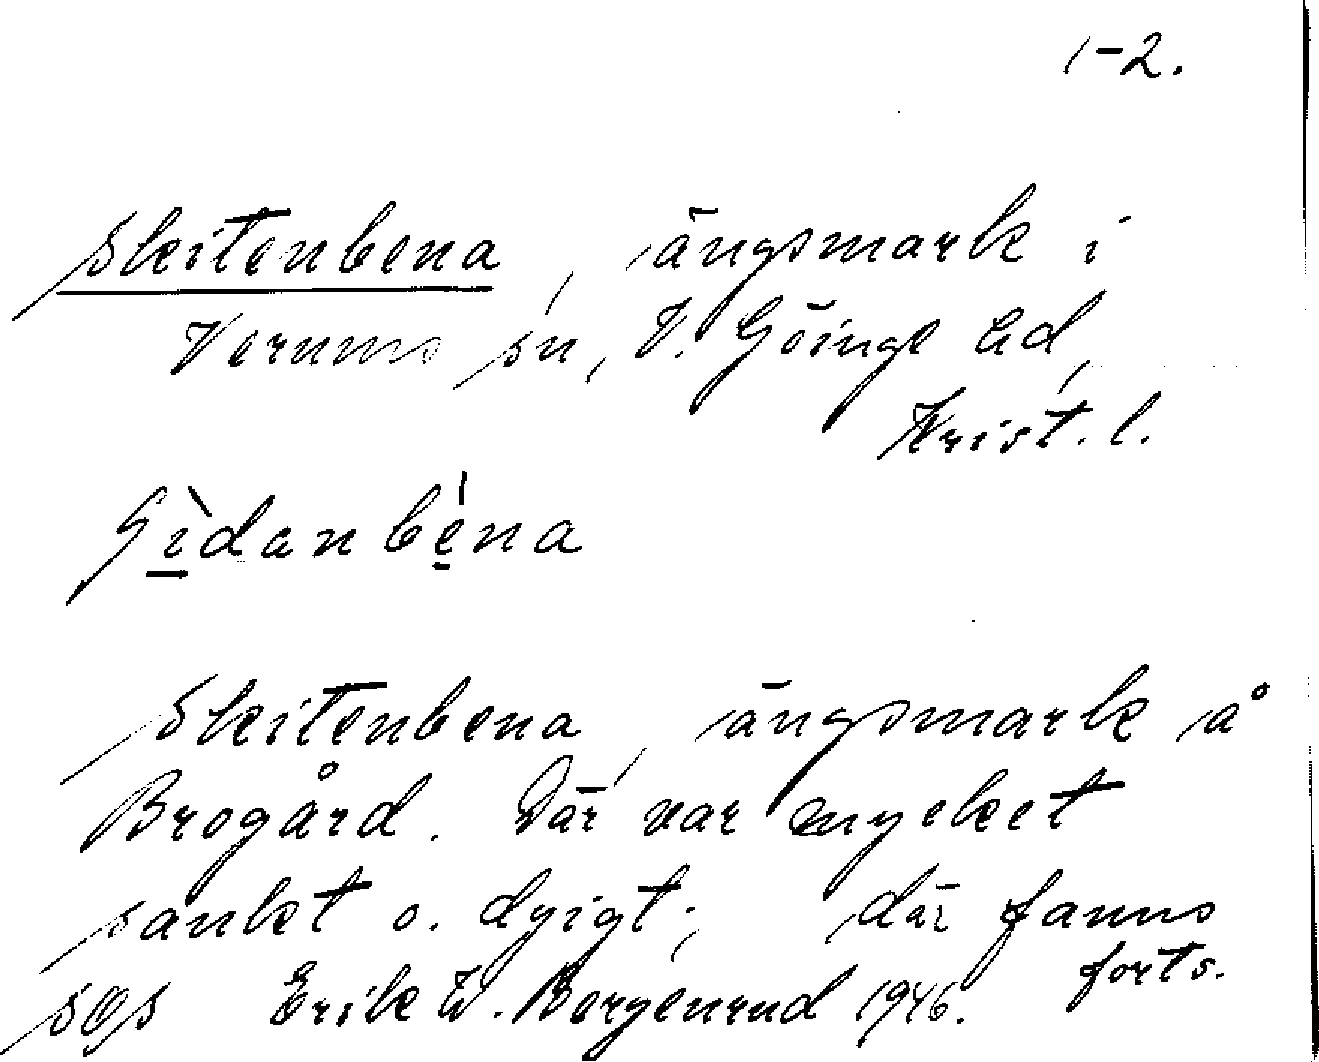 1-2.
Skitenbena, ängsmark i
Verums sn, V. Göinge hd,
Krist. l.
Skitenbena, ängsmark å
Brogård. Där var mycket
sankt o. dyigt; där fanns
forts.
Erik W. Borgenrud 1946.